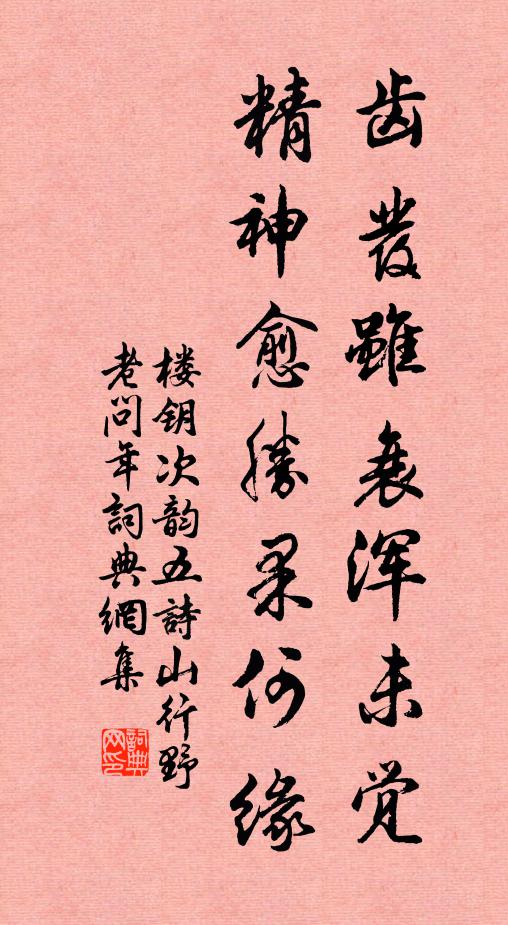 齿发雖衰浑未觉
精神愈勝果何缘
楼钥次韵五詩山行野
老问年詞典網集
詞典网印